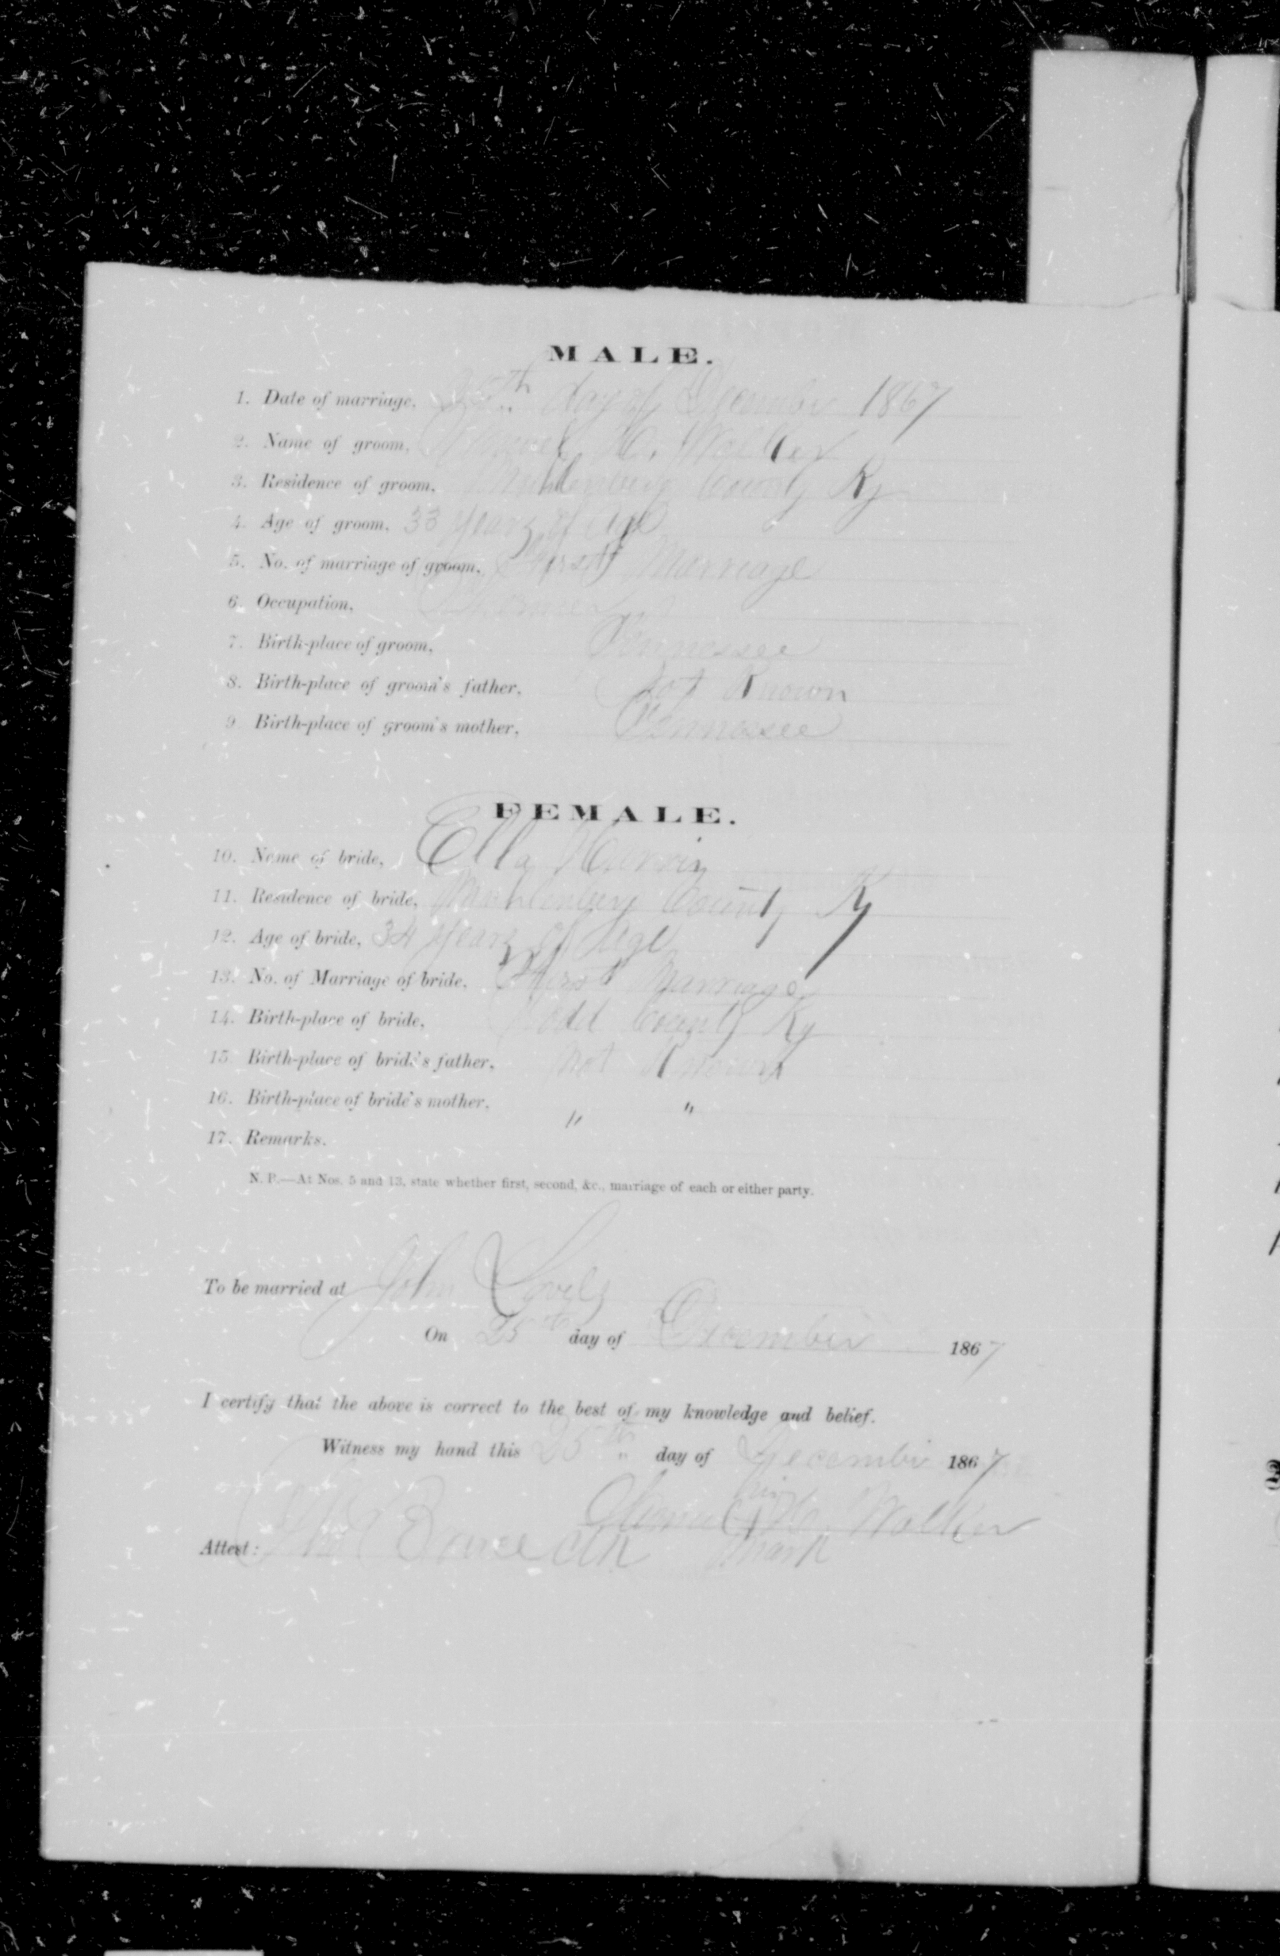 MALE.
1. Date of marriage, 25th day of December 1867
2. Name of groom, Samuel H. Walker
3. Residence of groom, Muhlenberg County Ky
4. Age of groom, 33 years of Age
5. No. of marriage of groom, First Marriage
6. Occupation, Farmer
7. Birth-place of groom, Tennessee
8. Birth-place of groom's father, Not Known
9. Birth-place of groom's mother, Tennessee
FEMALE.
10. Name of bride, Ella
11. Residence of bride, Muhlenberg County Ky
12. Age of bride, 34 years of Age
13. No. of Marriage of bride, First Marriage
14. Birth-place of bride, Todd County Ky
15. Birth-place of bride's father, Not Known
16. Birth-place of bride's mother, " "
17. Remarks.
N. B.—At Nos. 5 and 13, state whether first, second, &c., marriage of each or either party.
To be married at John
On 25th day of December 1867
I certify that the above is correct to the best of my knowledge and belief.
Witness my hand this 25th day of December 1867
his
Samuel H. Walker
Attest: Clk mark